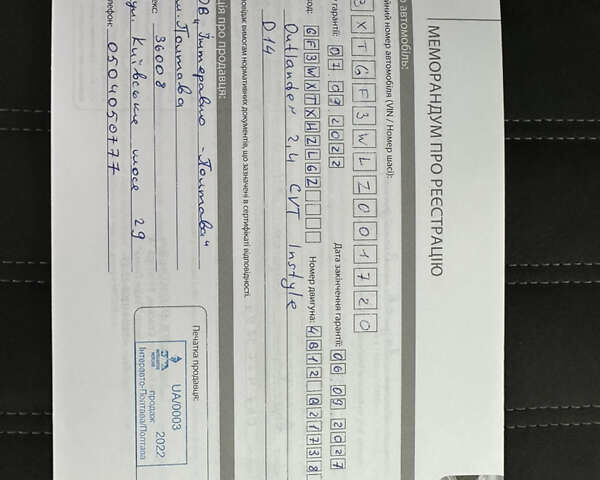 МЕМОРАНДУМ ПРО РЕЄСТРАЦІЮ
автомобіль:
номер автомобіля (VIN / Номер шасі):
X T G F 3 W L Z 0 0 1 7 2 0
гарантії: 07.09.2022
Дата закінчення гарантії: 06.09.2027
код: GF3WX7XHZL6Z
Номер двигуна: 4B12
Outlander 2,4 CVT Instyle
D14
вимогам нормативних документів, що зазначені в сертифікаті відповідності.
про продавця:
Інтеравто - Полтава"
м. Полтава
36008
Київське шосе 29
0504050777
Печатка продавця:
UA/0003
продаж 2022
Інтеравто-Полтава/Полтава